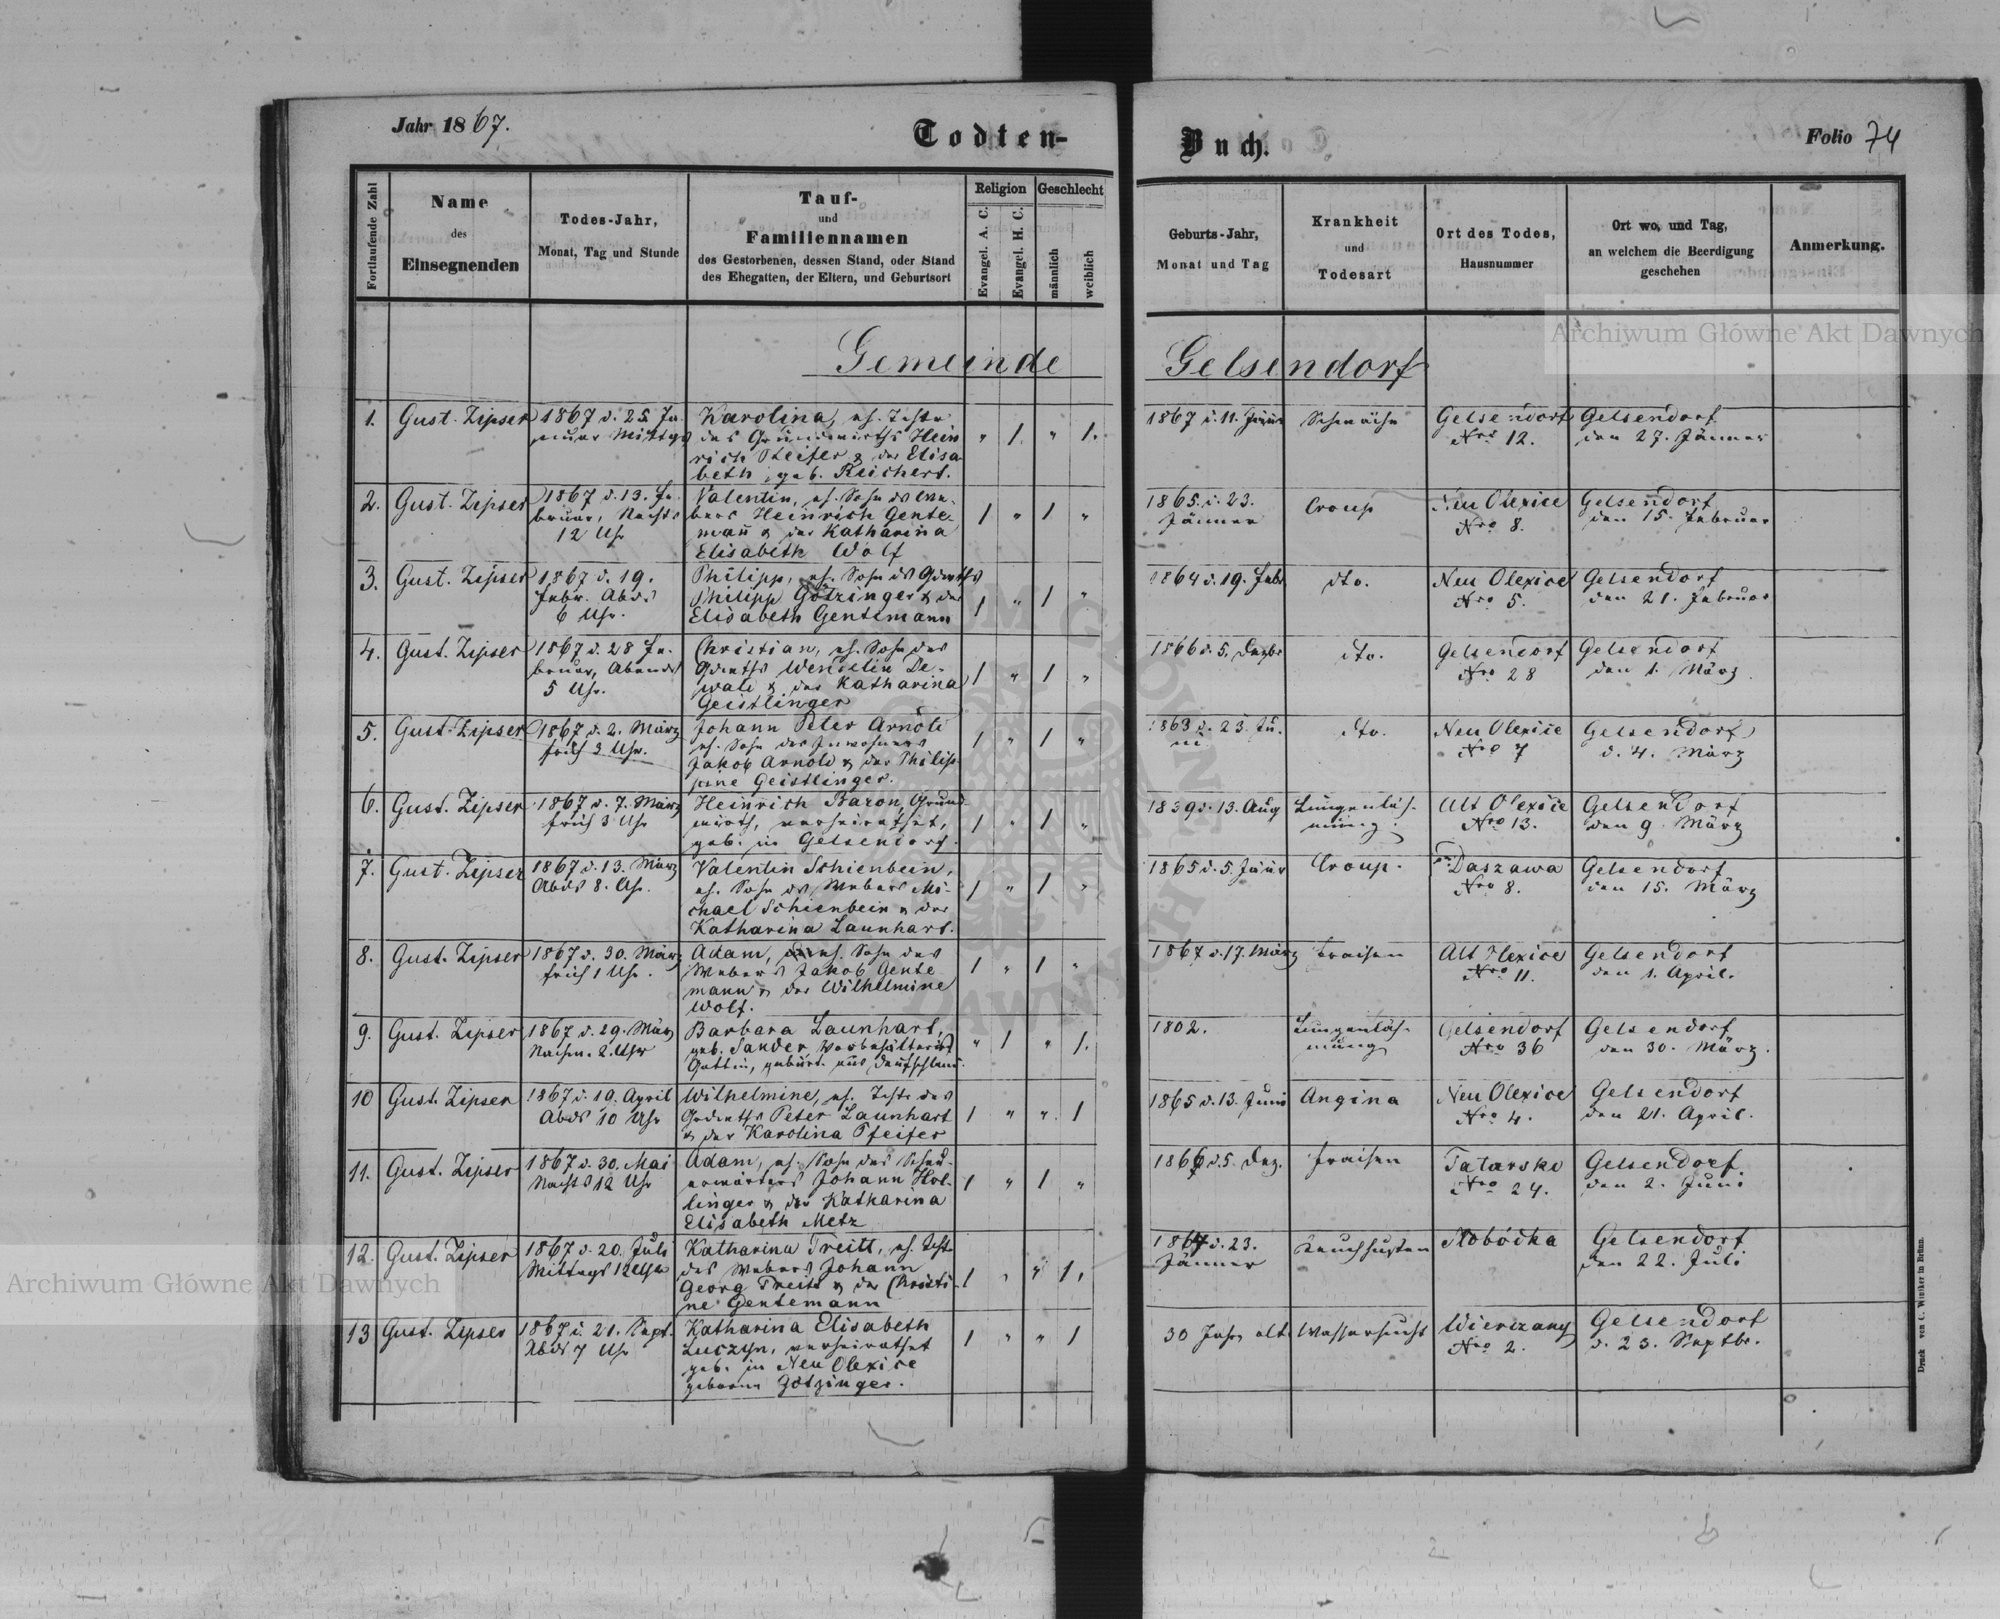 Jahr 1867.
Todten-
Buch.
Folio 74
Fortlaufende Zahl
Name
des
Einsegnenden
Todes-Jahr,
Monat, Tag und Stunde
Tauf-
und
Familiennamen
des Gestorbenen, dessen Stand, oder Stand
des Ehegatten, der Eltern, und Geburtsort
Religion
Evangel. A. C.
Evangel. H. C.
Geschlecht
männlich
weiblich
Geburts-Jahr,
Monat und Tag
Krankheit
und
Todesart
Ort des Todes,
Hausnummer
Ort wo, und Tag,
an welchem die Beerdigung
geschehen
Anmerkung.
Gemeinde Gelsendorf
1. Gust. Zipser
1867 d. 25 Jä-
nner Mittags
Karolina, eh. Tochter
des Grundwirths Hein
rich Pfeifer & der Elisa
beth, geb. Reichert.
" 1. " 1.
1867 d. 11. Jänner
Schwäche
Gelsendorf
Nro 12.
Gelsendorf
den 27. Jänner
2. Gust. Zipser
1867 d. 13. Fe-
bruar, Nachts
12 Uhr
Valentin, eh. Sohn des We-
bers Heinrich Gente-
mann & der Katharina
Elisabeth Wolf
1 " 1 "
1865. d. 23.
Jänner
Croup
Neu Olexice
Nro 8.
Gelsendorf
den 15. Februar
3. Gust. Zipser
1867 d. 19.
Febr. Abds
6 Uhr.
Philipp, eh. Sohn des Gdwths
Philipp Götzinger & der
Elisabeth Gentemann
1 " 1 "
1864 d. 19. Febr.
dto.
Neu Olexice
Nro 5.
Gelsendorf
den 21. Februar
4. Gust. Zipser
1867 d. 28 Fe-
bruar, Abends
5 Uhr.
Christian, eh. Sohn des
Gdwths Wenselin De-
wald & der Katharina
Geistlinger
1 " 1 "
1866 d. 5. Dezbr
dto.
Gelsendorf
Nro 28
Gelsendorf
den 1. März.
5. Gust. Zipser
1867 d. 2. März
früh 3 Uhr.
Johann Peter Arnold
eh. Sohn des Inwohners
Jakob Arnold & der Philip-
pine Geistlinger.
1 " 1 "
1863 d. 23. Ju-
ni
dto.
Neu Olexice
Nro 7
Gelsendorf
d. 4. März
6. Gust. Zipser
1867 d. 7. März
früh 3 Uhr
Heinrich Baron, Grund-
wirth, verheirathet,
geb. in Gelsendorf.
1 " 1 "
1839 d. 13. Aug
Lungenläh-
mung.
Alt Olexice
Nro 13.
Gelsendorf
den 9. März
7. Gust. Zipser
1867 d. 13. März
Abds 8. Uhr.
Valentin Schienbein,
eh. Sohn des Webers Mi-
chael Schienbein & der
Katharina Launhart.
1 " 1 "
1865 d. 5. Jänner
Croup.
Daszawa
Nro 8.
Gelsendorf
den 15. März
8. Gust. Zipser
1867 d. 30. März
früh 1 Uhr.
Adam, eh. Sohn des
Webers Jakob Gente
mann & der Wilhelmine
Wolf.
1 " 1 "
1867 d. 17. März
Fraisen
Alt Olexice
Nro 11.
Gelsendorf
den 1. April.
9. Gust. Zipser
1867 d. 29. März
Nachm. 2. Uhr
Barbara Launhart,
geb. Sander Vorbehälters
Gattin, gebürt. aus Deutschland.
" 1 " 1.
1802.
Lungenläh-
mung
Gelsendorf
Nro 36
Gelsendorf
den 30. März.
10 Gust. Zipser
1867 d. 19. April
Abds 10 Uhr
Wilhelmine, eh. Tocht. des
Gdwths Peter Launhart
& der Karolina Pfeifer
1 " " 1
1865 d. 13. Juni
Angina
Neu Olexice
Nro 4.
Gelsendorf
den 21. April.
11. Gust. Zipser
1867 d. 30. Mai
Nachts 12 Uhr
Adam, eh. Sohn des
Johann Hol-
linger & der Katharina
Elisabeth Metz
1 " 1 "
1866 d. 5. Dez.
Fraisen
Tatarsko
Nro 24.
Gelsendorf.
den 2. Juni
12. Gust. Zipser
1867 d. 20. Juli
Mittags 12 Uhr
Katharina Treitt, eh. Tocht.
des Webers Johann
Georg Treitt & der Christi-
ne Gentemann
1 " " 1.
1864 d. 23.
Jänner
Keuchhusten
Slobódka
Gelsendorf
den 22. Juli
13 Gust. Zipser
1867 d. 21. Sept.
Abds 7 Uhr
Katharina Elisabeth
Luczyn, verheirathet
geb. in Neu Olexice
geborne Götzinger.
1 " " 1
30 Jahr alt
Wassersucht
Wierczany
Nro 2.
Gelsendorf
d. 23. Septbr.
Druck von C. Winiker in Brünn.
Archiwum Główne Akt Dawnych
Archiwum Główne Akt Dawnych